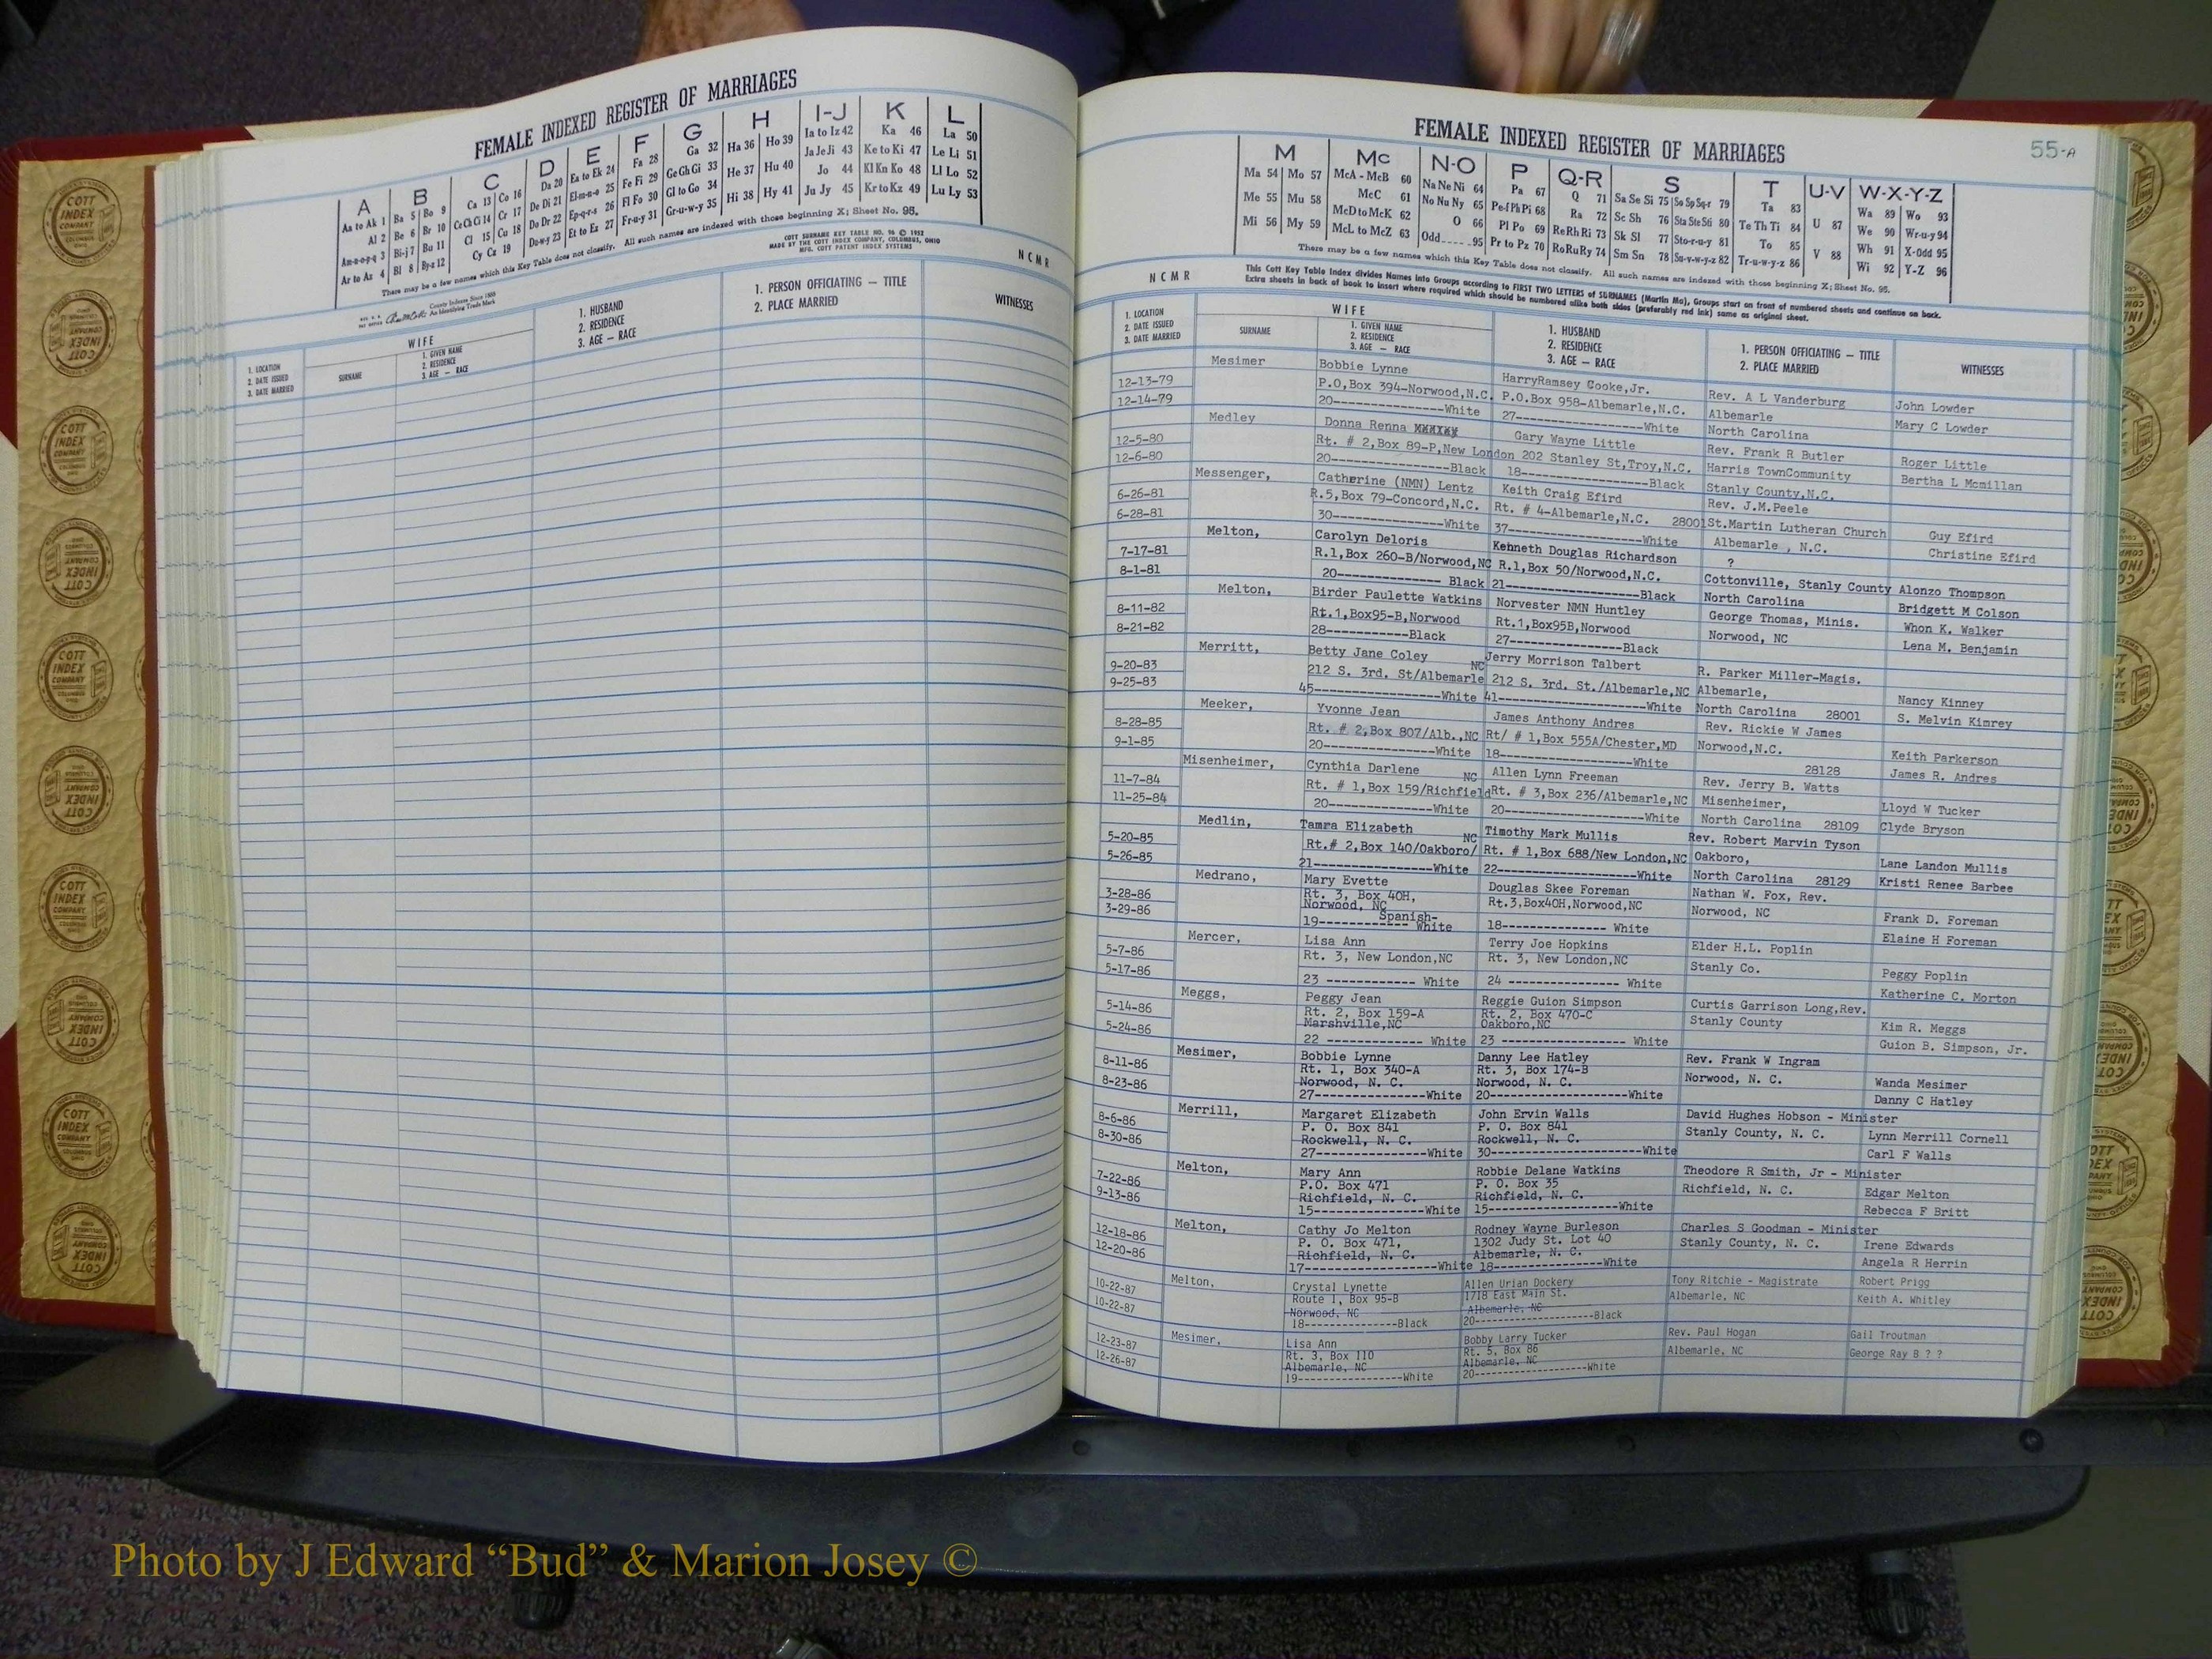 FEMALE INDEXED REGISTER OF MARRIAGES
A B C D E F G H I-J K L
Aa to Ak 1 Ba 5 Bo 9 Ca 13 Co 16 Da 20 Ea to Ek 24 Fa 28 Ga 32 Ha 36 Ho 39 Ia to Iz 42 Ka 46 La 50
Al 2 Be 6 Br 10 Ce Ch Ci 14 Cr 17 De Di 21 El-m-n-o 25 Fe Fi 29 Ge Gh Gi 33 He 37 Hu 40 Ja Je Ji 43 Ke to Ki 47 Le Li 51
Am-n-o-p-q 3 Bi-j 7 Bu 11 Cl 15 Cu 18 Do Dr 22 Ep-q-r-s 26 Fl Fo 30 Gl to Go 34 Hi 38 Hy 41 Jo 44 Kl Kn Ko 48 Ll Lo 52
Ar to Az 4 Bl 8 By-z 12 Cy Cz 19 Du-w-y 23 Et to Ez 27 Fr-u-y 31 Gr-u-w-y 35 Ju Jy 45 Kr to Kz 49 Lu Ly 53
There may be a few names which this Key Table does not classify. All such names are indexed with those beginning X; Sheet No. 95.
County Indexes Since 1888
An Identifying Trade Mark
COTT SURNAME KEY TABLE NO. 96 © 1952
MADE BY THE COTT INDEX COMPANY, COLUMBUS, OHIO
MFG. COTT PATENT INDEX SYSTEMS
N C M R
1. LOCATION
2. DATE ISSUED
3. DATE MARRIED
WIFE
SURNAME
1. GIVEN NAME
2. RESIDENCE
3. AGE — RACE
1. HUSBAND
2. RESIDENCE
3. AGE — RACE
1. PERSON OFFICIATING — TITLE
2. PLACE MARRIED
WITNESSES
FEMALE INDEXED REGISTER OF MARRIAGES
55-A
M Mc N-O P Q-R S T U-V W-X-Y-Z
Ma 54 Mo 57 McA - McB 60 Na Ne Ni 64 Pa 67 Q 71 Sa Se Si 75 So Sp Sq-r 79 Ta 83 U 87 Wa 89 Wo 93
Me 55 Mu 58 McC 61 No Nu Ny 65 Pe-f Ph Pi 68 Ra 72 Sc Sh 76 Sta Ste Sti 80 Te Th Ti 84 V 88 We 90 Wr-u-y 94
Mi 56 My 59 McD to McK 62 O 66 Pl Po 69 Re Rh Ri 73 Sk Sl 77 Sto-r-u-y 81 To 85 Wh 91 X-Odd 95
McL to McZ 63 Odd 95 Pr to Pz 70 Ro Ru Ry 74 Sm Sn 78 Su-v-w-y-z 82 Tr-u-w-y-z 86 Wi 92 Y-Z 96
There may be a few names which this Key Table does not classify. All such names are indexed with those beginning X; Sheet No. 95.
N C M R
This Cott Key Table Index divides Names into Groups according to FIRST TWO LETTERS of SURNAMES (Martin Ma), Groups start on front of numbered sheets and continue on back.
Extra sheets in back of book to insert where required which should be numbered alike both sides (preferably red ink) same as original sheet.
1. LOCATION
2. DATE ISSUED
3. DATE MARRIED
WIFE
SURNAME
1. GIVEN NAME
2. RESIDENCE
3. AGE — RACE
1. HUSBAND
2. RESIDENCE
3. AGE — RACE
1. PERSON OFFICIATING — TITLE
2. PLACE MARRIED
WITNESSES
Mesimer Bobbie Lynne HarryRamsey Cooke,Jr. Rev. A L Vanderburg John Lowder
12-13-79 P.O,Box 394-Norwood,N.C. P.O.Box 958-Albemarle,N.C. Albemarle Mary C Lowder
12-14-79 20---------------White 27---------------White North Carolina
Medley Donna Renna Gary Wayne Little Rev. Frank R Butler Roger Little
12-5-80 Rt. # 2,Box 89-P,New London 202 Stanley St,Troy,N.C. Harris TownCommunity Bertha L Mcmillan
12-6-80 20---------------Black 18---------------Black Stanly County,N.C.
Messenger, Catherine (NMN) Lentz Keith Craig Efird Rev. J.M.Peele
6-26-81 R.5,Box 79-Concord,N.C. Rt. # 4-Albemarle,N.C. 28001 St.Martin Lutheran Church Guy Efird
6-28-81 30---------------White 37---------------White Albemarle , N.C. Christine Efird
Melton, Carolyn Deloris Kenneth Douglas Richardson ?
7-17-81 R.1,Box 260-B/Norwood,NC R.1,Box 50/Norwood,N.C. Cottonville, Stanly County Alonzo Thompson
8-1-81 20-------------- Black 21---------------Black North Carolina Bridgett M Colson
Melton, Birder Paulette Watkins Norvester NMN Huntley George Thomas, Minis. Whon K. Walker
8-11-82 Rt.1,Box95-B,Norwood Rt.1,Box95B,Norwood Norwood, NC Lena M. Benjamin
8-21-82 28-----------Black 27---------------Black
Merritt, Betty Jane Coley Jerry Morrison Talbert R. Parker Miller-Magis.
9-20-83 212 S. 3rd. St/Albemarle NC 212 S. 3rd. St./Albemarle,NC Albemarle, Nancy Kinney
9-25-83 45---------------White 41---------------White North Carolina 28001 S. Melvin Kimrey
Meeker, Yvonne Jean James Anthony Andres Rev. Rickie W James
8-28-85 Rt. # 2,Box 807/Alb.,NC Rt/ # 1,Box 555A/Chester,MD Norwood,N.C. Keith Parkerson
9-1-85 20---------------White 18---------------White 28128 James R. Andres
Misenheimer, Cynthia Darlene Allen Lynn Freeman Rev. Jerry B. Watts
11-7-84 Rt. # 1,Box 159/Richfield NC Rt. # 3,Box 236/Albemarle,NC Misenheimer, Lloyd W Tucker
11-25-84 20---------------White 20---------------White North Carolina 28109 Clyde Bryson
Medlin, Tamra Elizabeth Timothy Mark Mullis Rev. Robert Marvin Tyson
5-20-85 Rt.# 2,Box 140/Oakboro/ NC Rt. # 1,Box 688/New London,NC Oakboro, Lane Landon Mullis
5-26-85 21---------------White 22---------------White North Carolina 28129 Kristi Renee Barbee
Medrano, Mary Evette Douglas Skee Foreman Nathan W. Fox, Rev.
3-28-86 Rt. 3, Box 40H, Rt.3,Box40H,Norwood,NC Norwood, NC Frank D. Foreman
3-29-86 Norwood, NC Elaine H Foreman
19---------Spanish- White 18--------------- White
Mercer, Lisa Ann Terry Joe Hopkins Elder H.L. Poplin
5-7-86 Rt. 3, New London,NC Rt. 3, New London,NC Stanly Co. Peggy Poplin
5-17-86 23 ------------ White 24 --------------- White Katherine C. Morton
Meggs, Peggy Jean Reggie Guion Simpson Curtis Garrison Long,Rev.
5-14-86 Rt. 2, Box 159-A Rt. 2, Box 470-C Stanly County Kim R. Meggs
5-24-86 Marshville,NC Oakboro,NC Guion B. Simpson, Jr.
22 ------------- White 23 --------------- White
Mesimer, Bobbie Lynne Danny Lee Hatley Rev. Frank W Ingram
8-11-86 Rt. 1, Box 340-A Rt. 3, Box 174-B Norwood, N. C. Wanda Mesimer
8-23-86 Norwood, N. C. Norwood, N. C. Danny C Hatley
27---------------White 20---------------White
Merrill, Margaret Elizabeth John Ervin Walls David Hughes Hobson - Minister
8-6-86 P. O. Box 841 P. O. Box 841 Stanly County, N. C. Lynn Merrill Cornell
8-30-86 Rockwell, N. C. Rockwell, N. C. Carl F Walls
27---------------White 30---------------White
Melton, Mary Ann Robbie Delane Watkins Theodore R Smith, Jr - Minister
7-22-86 P.O. Box 471 P. O. Box 35 Richfield, N. C. Edgar Melton
9-13-86 Richfield, N. C. Richfield, N. C. Rebecca F Britt
15---------------White 15---------------White
Melton, Cathy Jo Melton Rodney Wayne Burleson Charles S Goodman - Minister
12-18-86 P. O. Box 471, 1302 Judy St. Lot 40 Stanly County, N. C. Irene Edwards
12-20-86 Richfield, N. C. Albemarle, N. C. Angela R Herrin
17---------------White 18---------------White
Melton, Crystal Lynette Allen Urian Dockery Tony Ritchie - Magistrate Robert Prigg
10-22-87 Route 1, Box 95-B 1718 East Main St. Albemarle, NC Keith A. Whitley
10-22-87 Norwood, NC Albemarle, NC
18---------------Black 20---------------Black
Mesimer, Lisa Ann Bobby Larry Tucker Rev. Paul Hogan Gail Troutman
12-23-87 Rt. 3, Box 110 Rt. 5, Box 86 Albemarle, NC George Ray B ? ?
12-26-87 Albemarle, NC Albemarle, NC
19---------------White 20---------------White
COTT INDEX COMPANY
Photo by J Edward “Bud” & Marion Josey ©